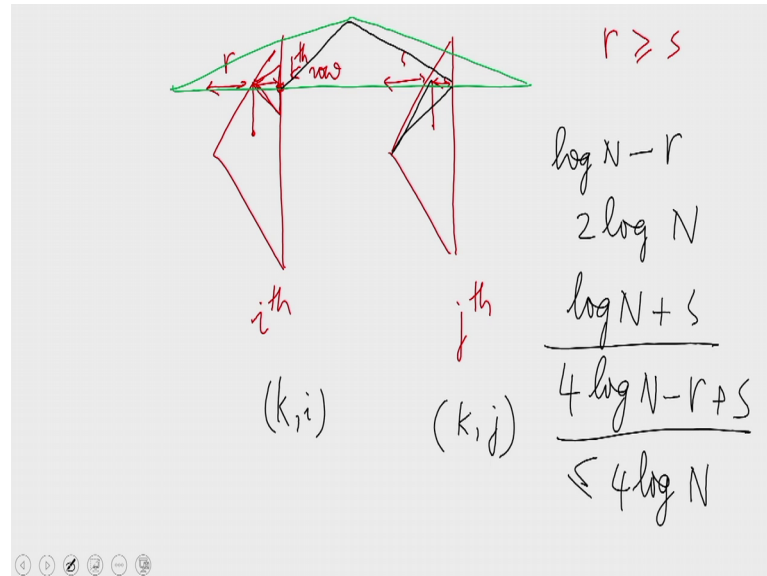 r ≥ s
r
kth row
s
log N − r
2 log N
log N + s
4 log N − r + s
≤ 4 log N
ith
jth
(k, i)
(k, j)